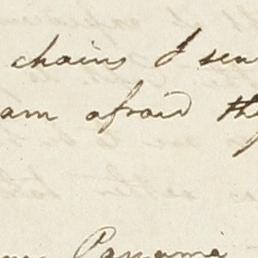 chains I sen
am afraid the
Panama